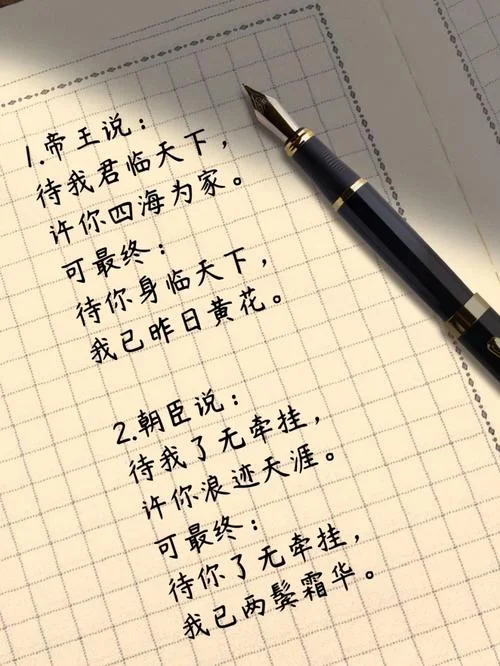 1.帝王说：
待我君临天下，
许你四海为家。
可最终：
待你身临天下，
我已昨日黄花。
2.朝臣说：
待我了无牵挂，
许你浪迹天涯。
可最终：
待你了无牵挂，
我已两鬓霜华。